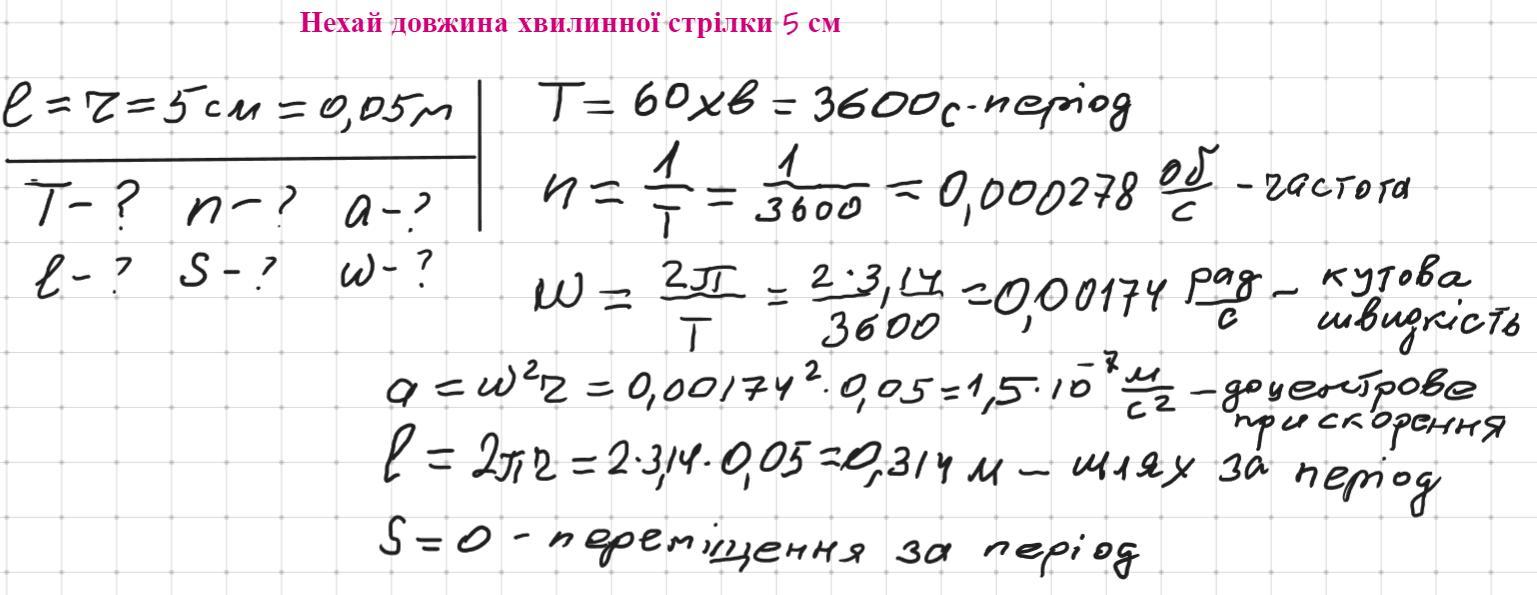 Нехай довжина хвилинної стрілки 5 см
ℓ = r = 5 см = 0,05 м
T - ? n - ? a - ?
ℓ - ? S - ? ω - ?
T = 60 хв = 3600 с - період
n = 1/T = 1/3600 = 0,000278 об/с - частота
ω = 2π/T = 2·3,14/3600 = 0,00174 рад/с - кутова
швидкість
a = ω²r = 0,00174²·0,05 = 1,5·10⁻⁷ м/с² - доцентрове
прискорення
ℓ = 2πr = 2·3,14·0,05 = 0,314 м - шлях за період
S = 0 - переміщення за період